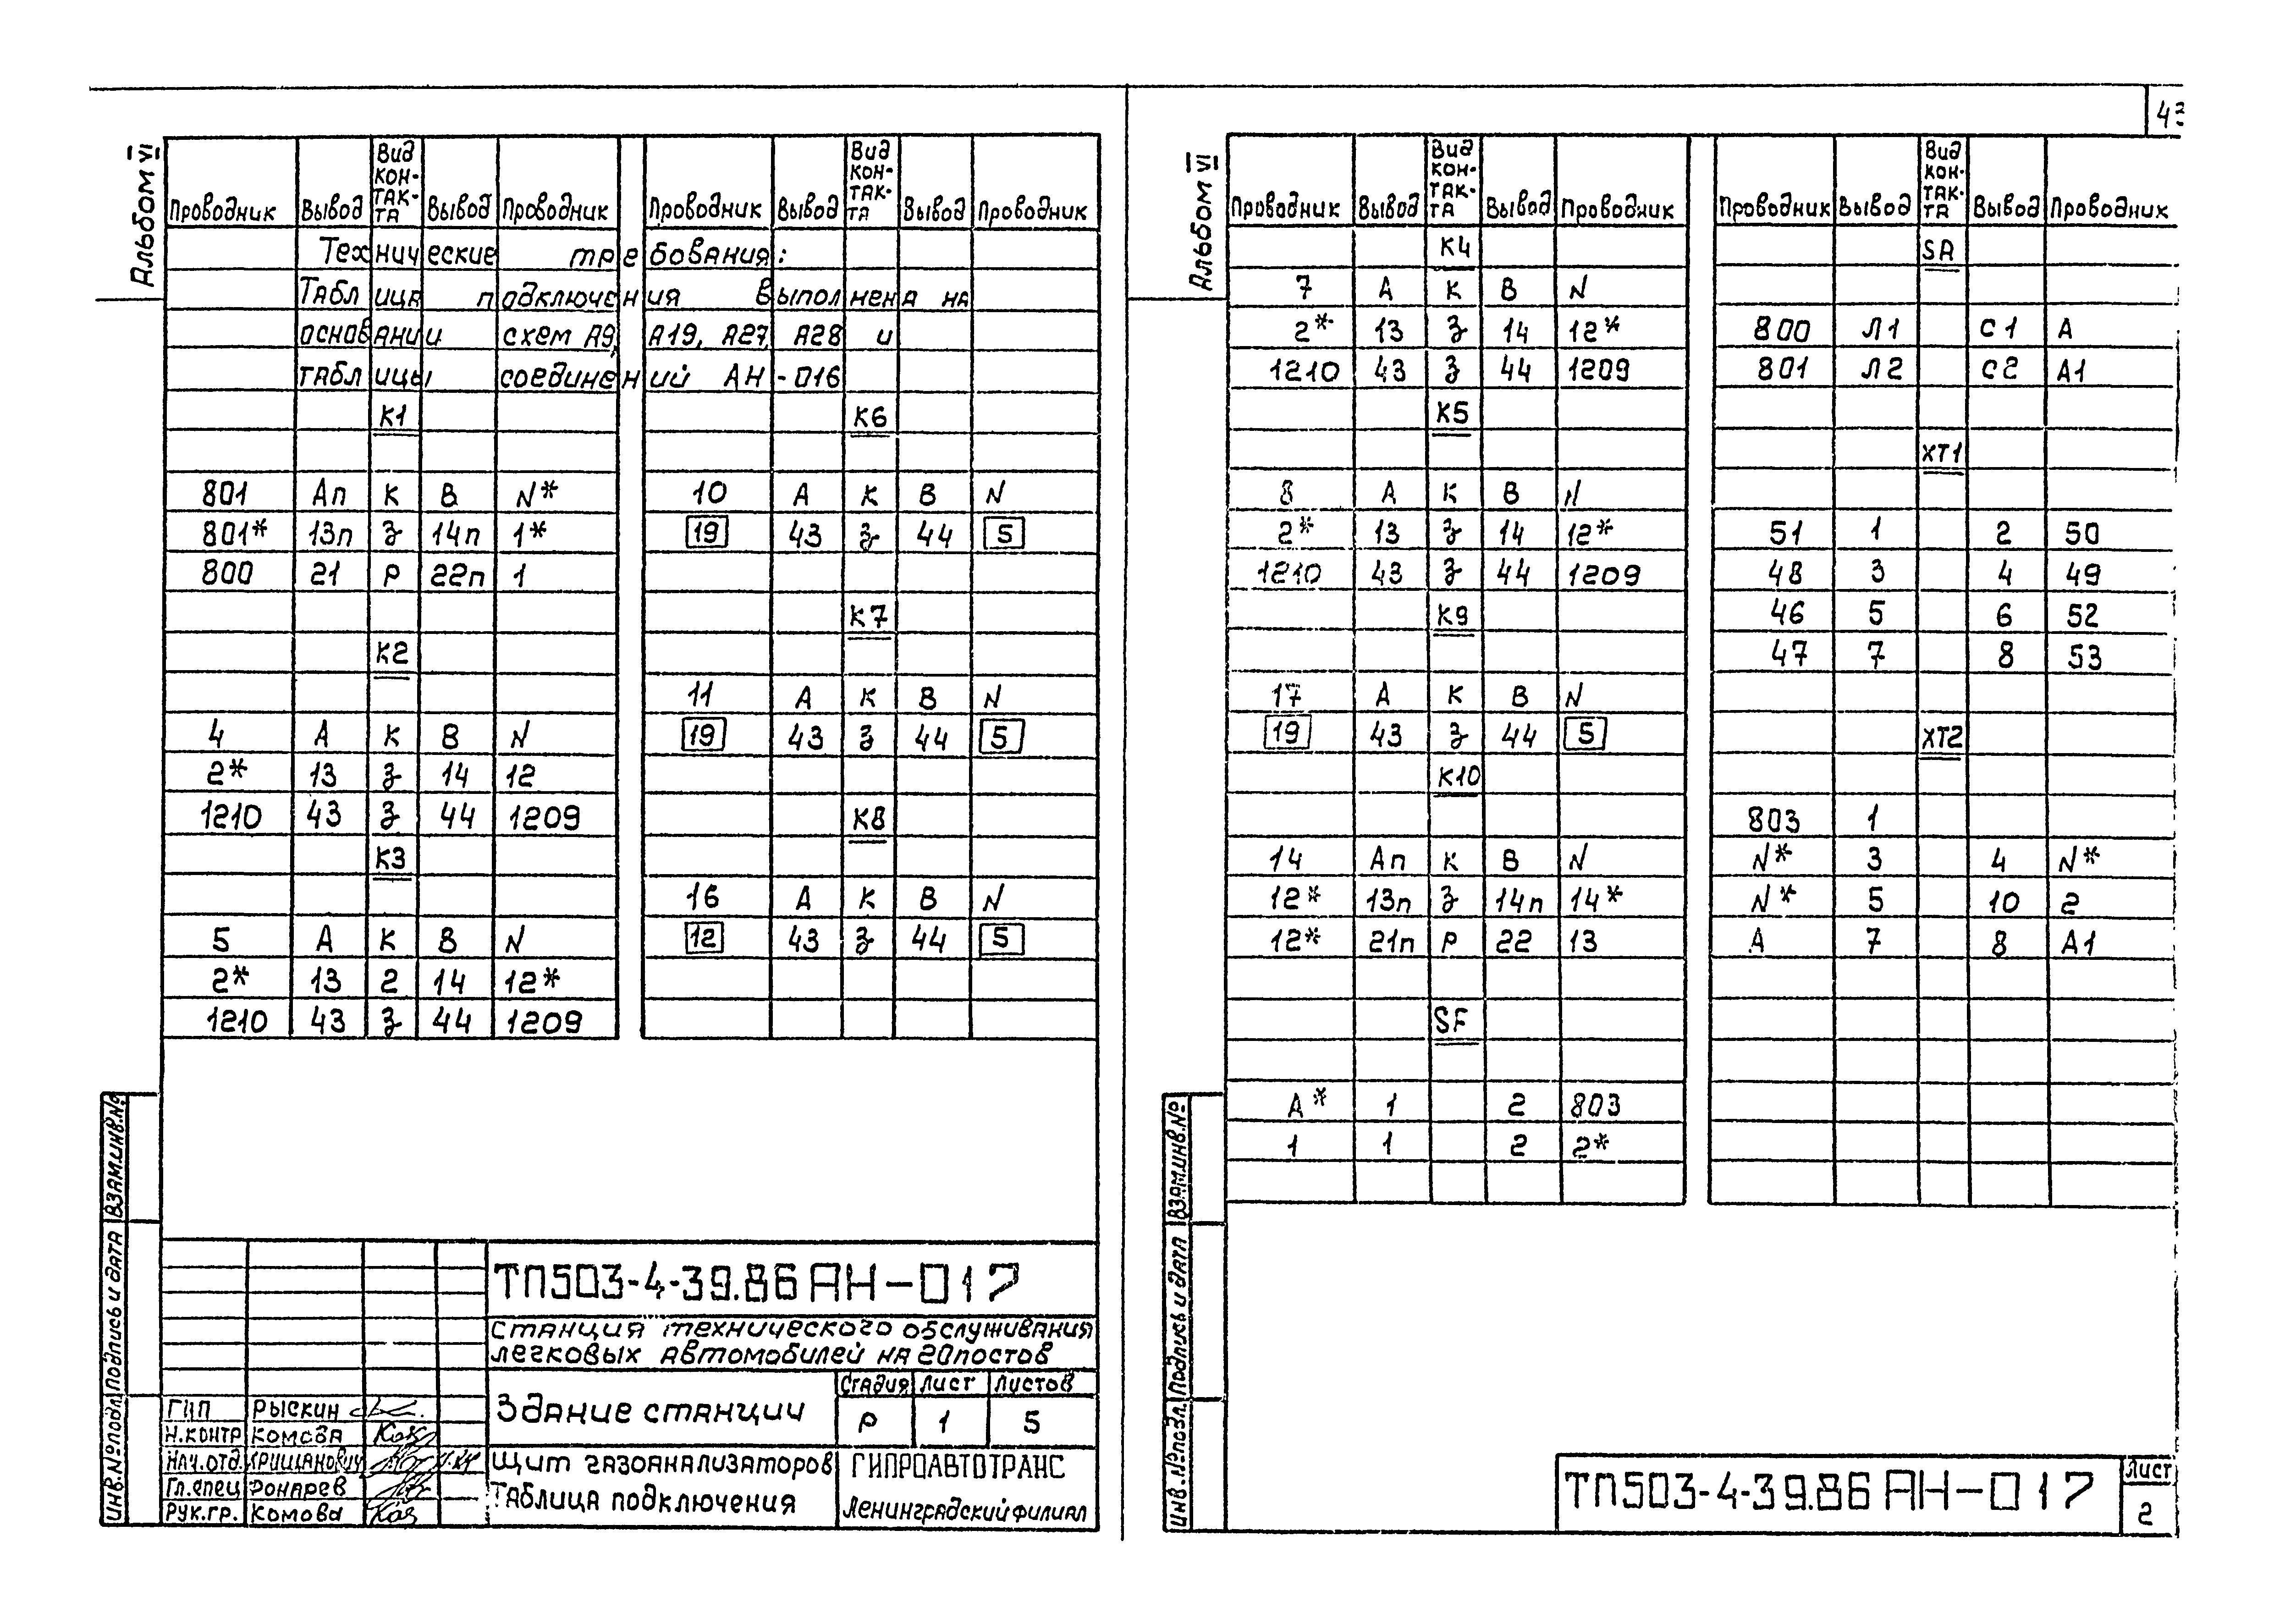 Альбом VI
Проводник Вывод Вид кон-так-та Вывод Проводник Проводник Вывод Вид кон-так-та Вывод Проводник
Технические требования:
Таблица подключения выполнена на
основании схем А9, А19, А27, А28 и
таблицы соединений АН-016
К1 К6
801 Ап К В N* 10 А К В N
801* 13п З 14п 1* 19 43 З 44 5
800 21 Р 22п 1
К7
К2
11 А К В N
4 А К В N 19 43 З 44 5
2* 13 З 14 12
1210 43 З 44 1209 К8
К3
16 А К В N
5 А К В N 12 43 З 44 5
2* 13 2 14 12*
1210 43 З 44 1209
ТП503-4-39.86 АН-017
Станция технического обслуживания
легковых автомобилей на 20 постов
Здание станции
Стадия Лист Листов
Р 1 5
Щит газоанализаторов
Таблица подключения
ГИПРОАВТОТРАНС
Ленинградский филиал
ГИП Рыскин
Н.контр Комова
Нач.отд. Крицанович
Гл.спец Фонарев
Рук.гр. Комова
Инв.№ подл. Подпись и дата Взам.инв.№
Альбом VI
Проводник Вывод Вид кон-так-та Вывод Проводник Проводник Вывод Вид кон-так-та Вывод Проводник
К4 SA
7 А К В N
2* 13 З 14 12* 800 Л1 С1 А
1210 43 З 44 1209 801 Л2 С2 А1
К5
XT1
8 А К В N
2* 13 З 14 12* 51 1 2 50
1210 43 З 44 1209 48 3 4 49
К9 46 5 6 52
47 7 8 53
17 А К В N
19 43 З 44 5 XT2
К10
803 1
14 Ап К В N N* 3 4 N*
12* 13п З 14п 14* N* 5 10 2
12* 21п Р 22 13 А 7 8 А1
SF
А* 1 2 803
1 1 2 2*
ТП503-4-39.86 АН-017
Лист
2
Инв.№ подл. Подпись и дата Взам.инв.№